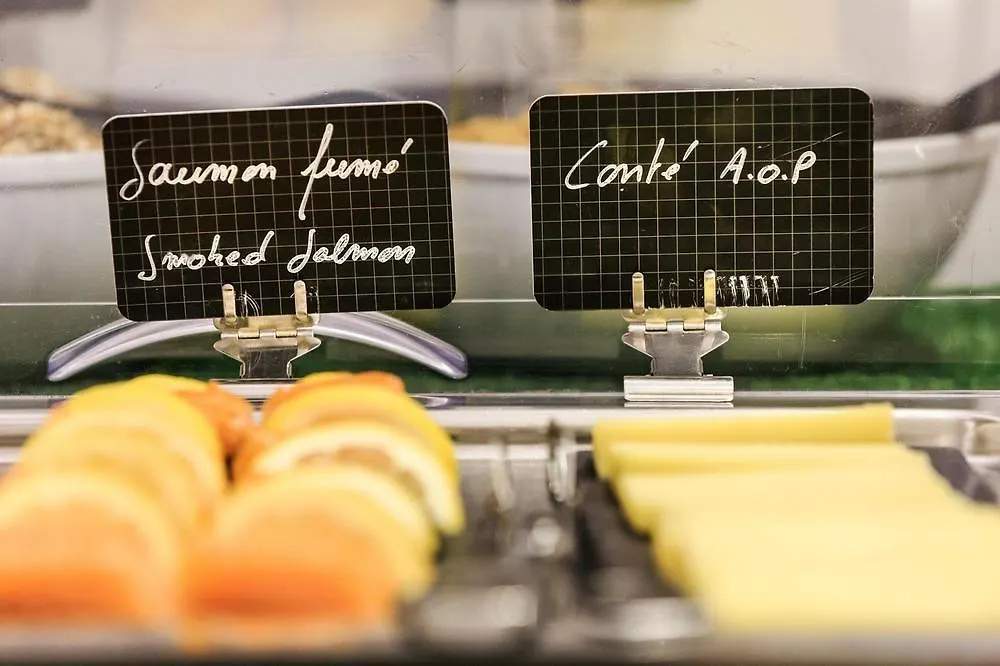 Saumon fumé
Smoked Salmon
Conté A.O.P